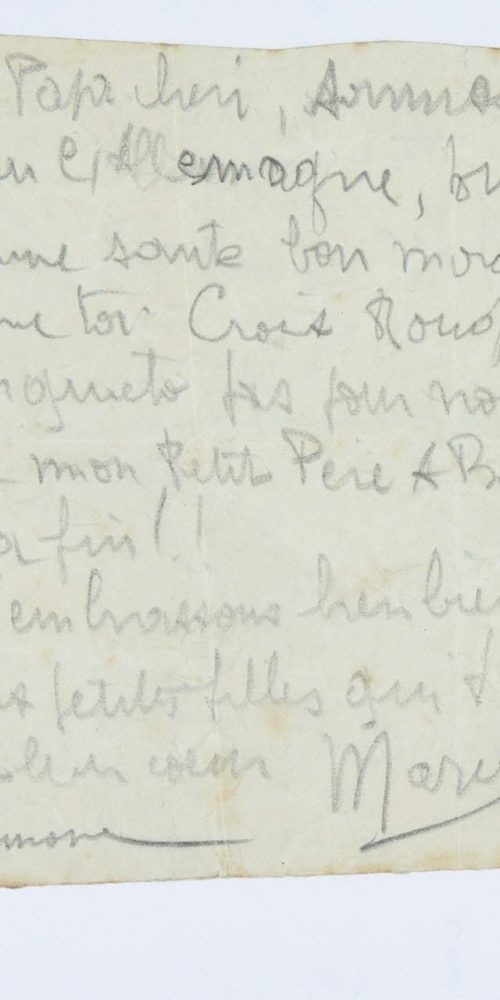 Papa cheri, Sommes
en Allemagne, bo
une sante bon mora
ne toi Croix Roug
nquiete pas pour no
mon Petit Père A B
a fin!!
embrassons bien bien
s petites filles qui t
leur coeur Marc
imone